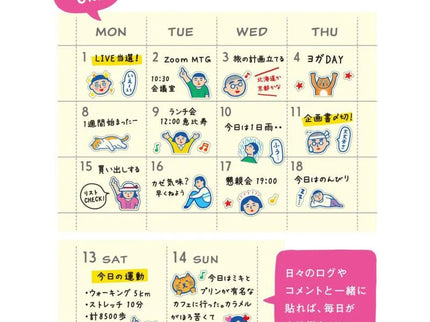 MON TUE WED THU
1 LIVE当選!
いえーい
2 Zoom MTG
10:30
会議室
3 旅の計画立てる
北海道か
京都かな
4 ヨガDAY
8
1週間始まったー
9 ランチ会
12:00 恵比寿
10
今日は1日雨・・
ふう…
11
企画書〆切!
15 買い出しする
リスト
CHECK!
16
カゼ気味?
早くねよう
17
懇親会 19:00
18
今日はのんびり
13 SAT
今日の運動
・ウォーキング 5km
・ストレッチ 10分
・計8500歩
14 SUN
今日はミキと
プリンが有名な
カフェに行った。カラメル
がほろ苦くて
日々のログや
コメントと一緒に
貼れば、毎日が